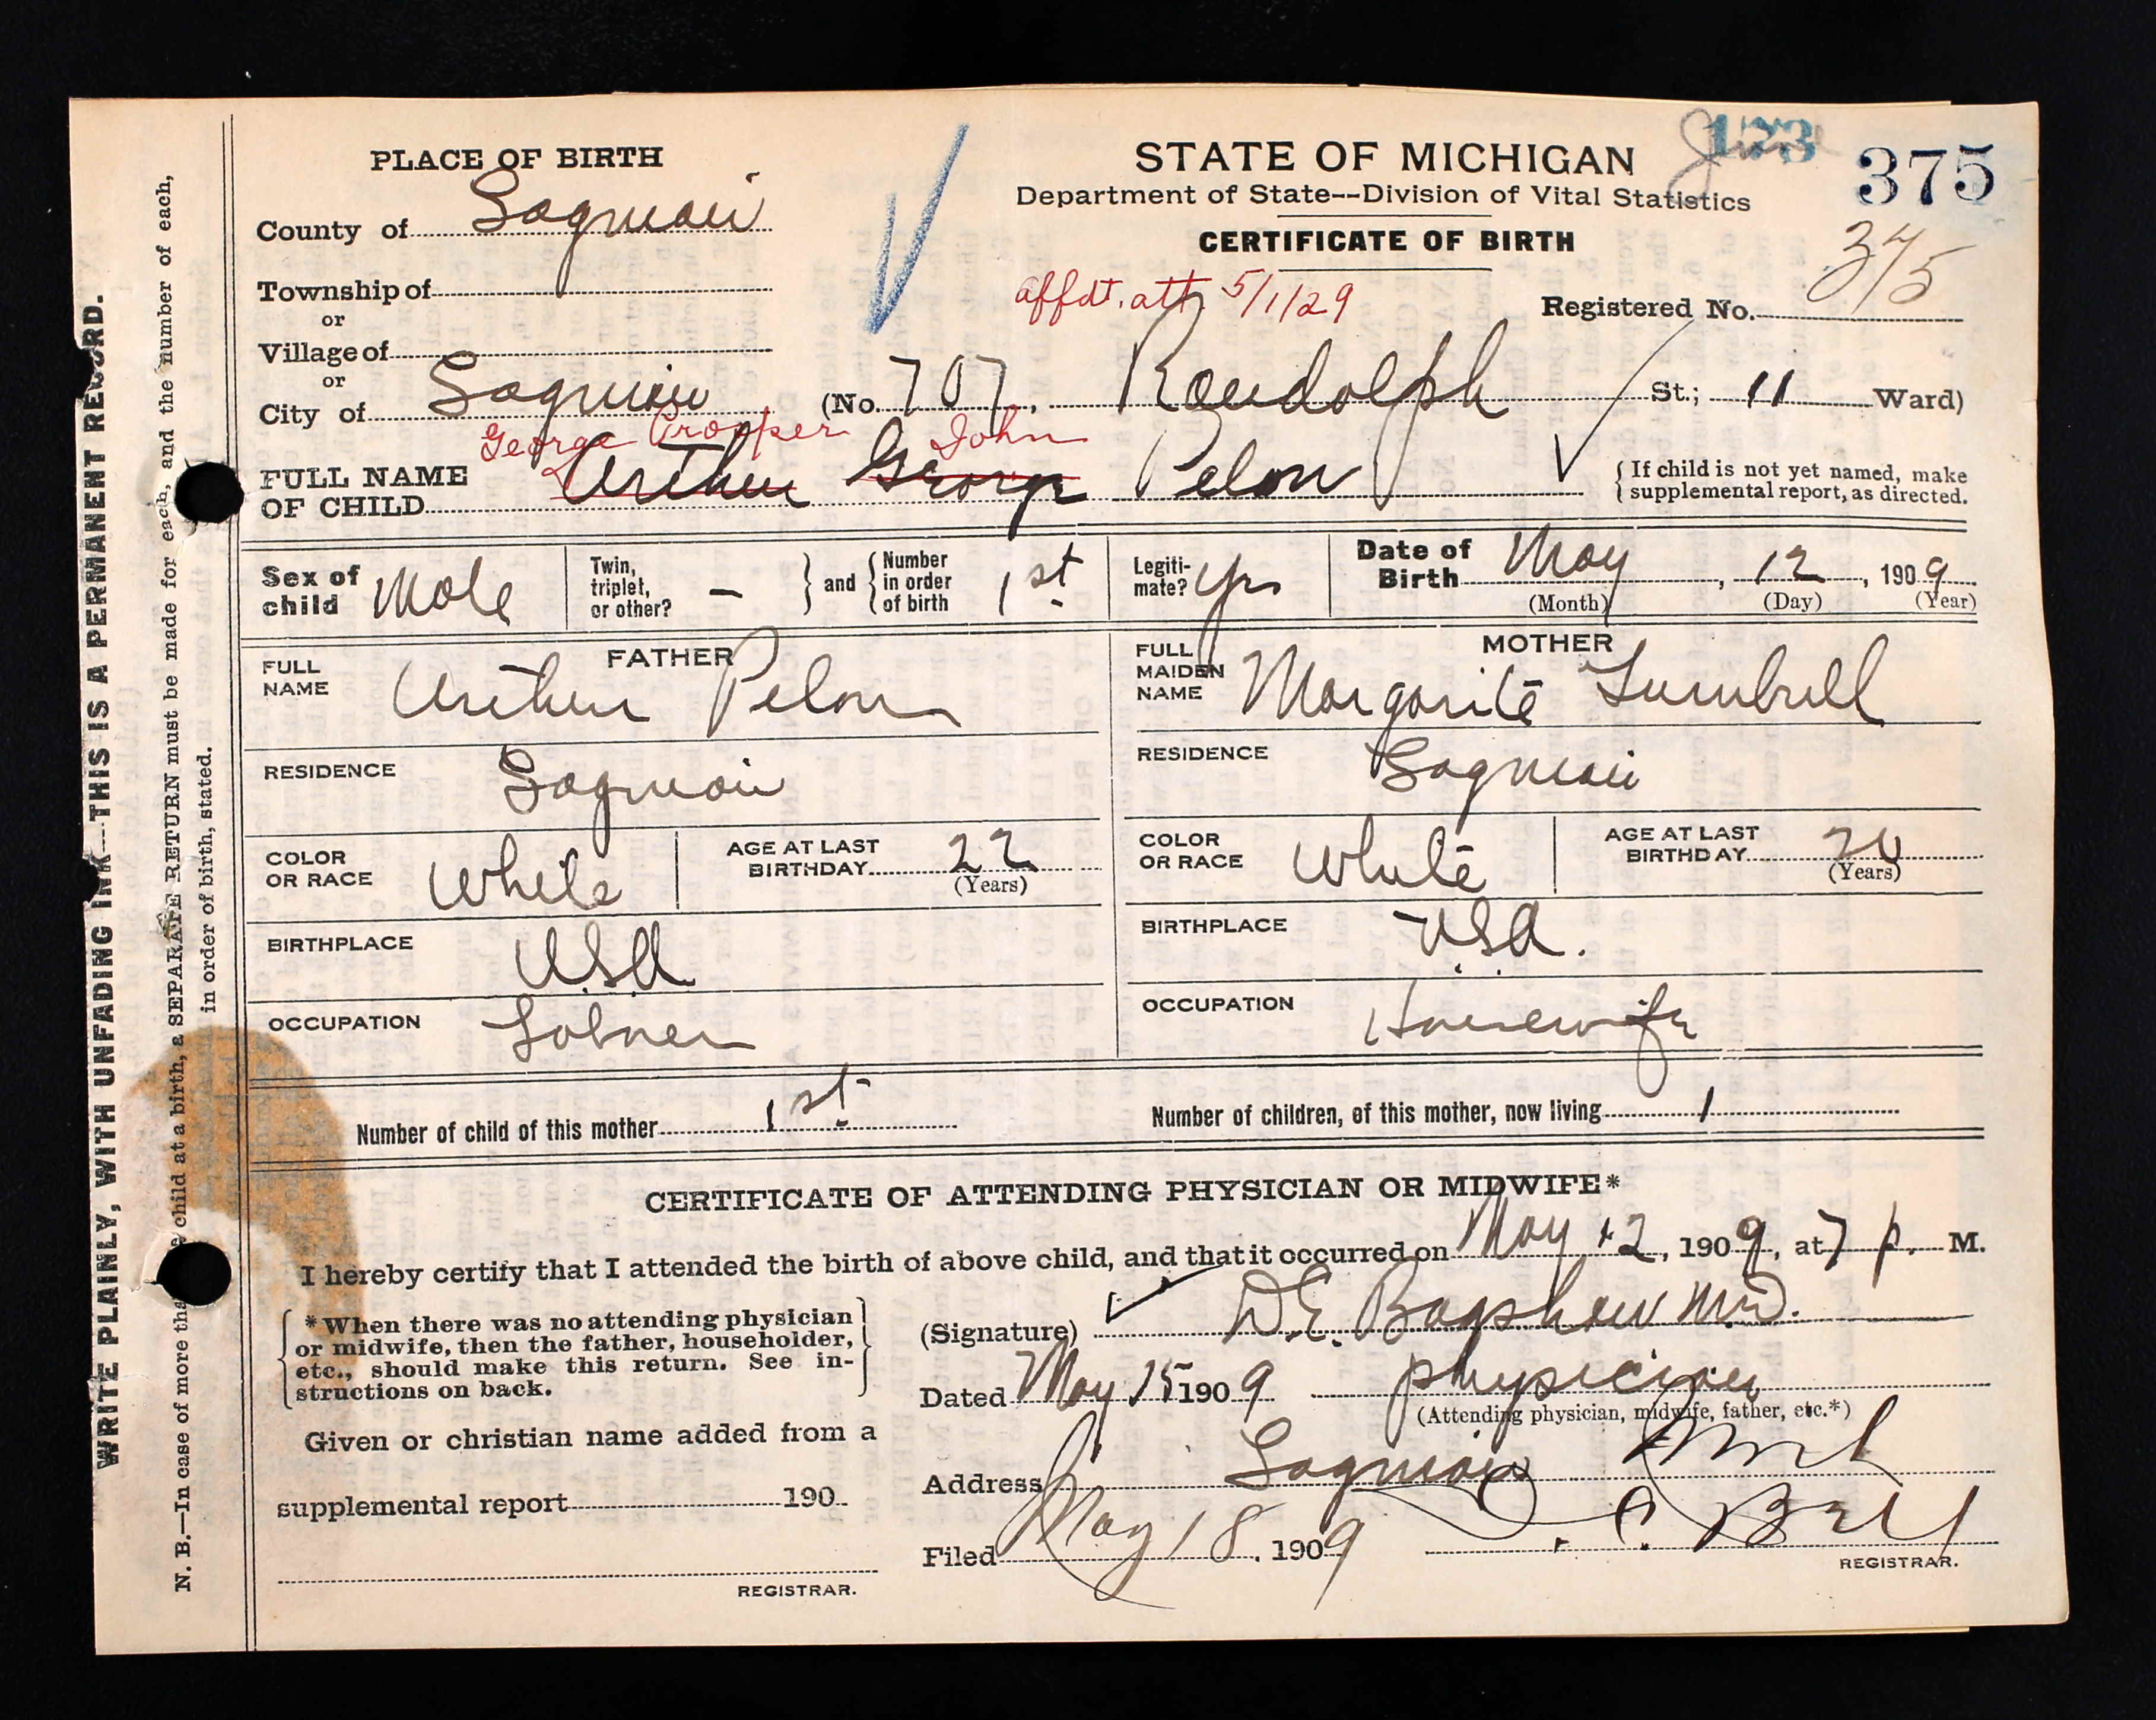 PLACE OF BIRTH
County of Saginaw
Township of
or
Village of
or
City of Saginaw
STATE OF MICHIGAN
Department of State--Division of Vital Statistics
CERTIFICATE OF BIRTH
123
375
affdt. att. 5/1/29
Registered No. 375
(No. 707, Randolph St.; 11 Ward)
George Cropper John
FULL NAME OF CHILD Arthur George Pelon
{If child is not yet named, make
supplemental report, as directed.
Sex of child Male
Twin, triplet, or other? -
and
Number in order of birth 1st
Legiti-mate? Yes
Date of Birth May, 12, 1909
(Month) (Day) (Year)
FATHER
FULL NAME Arthur Pelon
RESIDENCE Saginaw
COLOR OR RACE White
AGE AT LAST BIRTHDAY 22
(Years)
BIRTHPLACE U.S.A
OCCUPATION Laborer
MOTHER
FULL MAIDEN NAME Margarite Turnbull
RESIDENCE Saginaw
COLOR OR RACE White
AGE AT LAST BIRTHDAY 20
(Years)
BIRTHPLACE U.S.A.
OCCUPATION Housewife
Number of child of this mother 1st
Number of children, of this mother, now living 1
CERTIFICATE OF ATTENDING PHYSICIAN OR MIDWIFE*
I hereby certify that I attended the birth of above child, and that it occurred on May 12, 1909, at 7 p. M.
*When there was no attending physician
or midwife, then the father, householder,
etc., should make this return. See in-
structions on back.
(Signature) D.E. Bagshaw M.D.
Dated May 15 1909 physician
(Attending physician, midwife, father, etc.*)
Given or christian name added from a
supplemental report 190
REGISTRAR.
Address Saginaw Mich
Filed May 18, 1909
REGISTRAR.
WRITE PLAINLY, WITH UNFADING INK--THIS IS A PERMANENT RECORD.
N. B.—In case of more tha e child at a birth, a SEPARATE RETURN must be made for each, and the number of each,
in order of birth, stated.